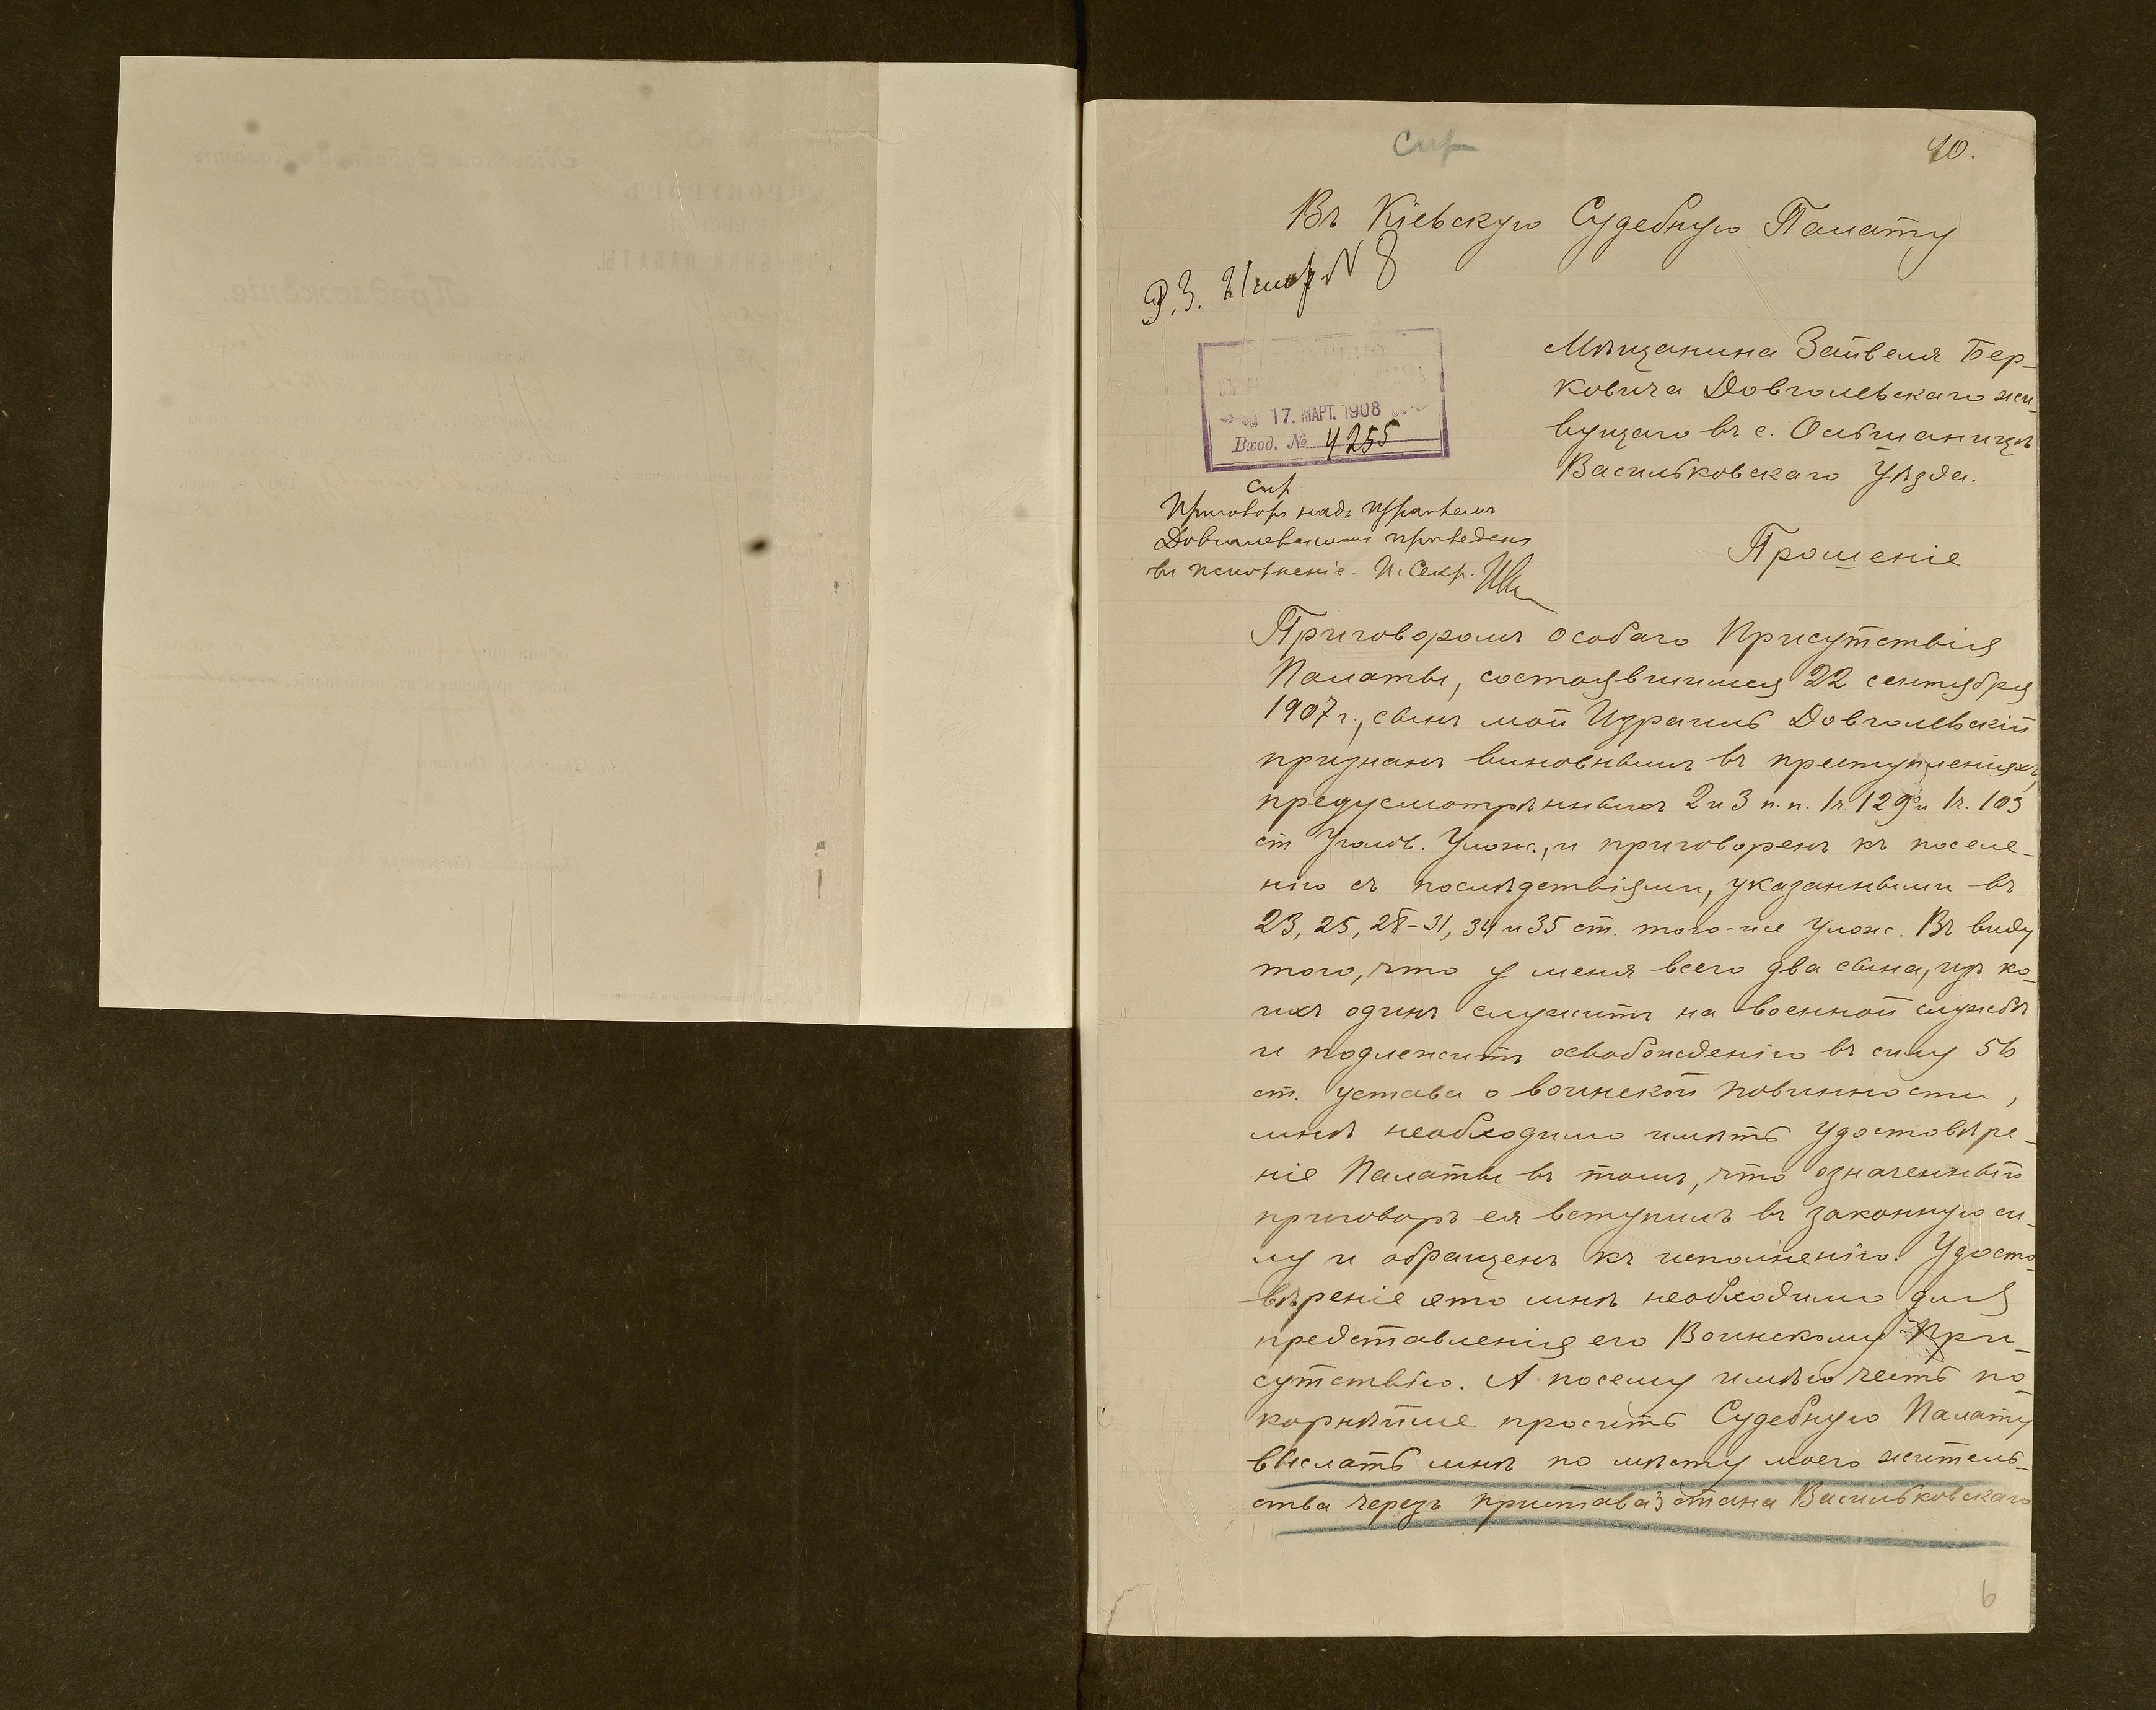 40.
Въ Кіевскую Судебную Палату
Р.З.
17. МАРТ. 1908
Вход. № 4255
Мѣщанина Зайвеля Бер-
ковича Довголевскаго жи-
вущаго въ с. Ольшаницѣ
Васильковскаго Уѣзда.
Приговоръ надъ Израилемъ
Довголевскимъ приведенъ
въ исполненіе. И. Секр.
Прошеніе
Приговоромъ особаго Присутствія
Палаты, состоявшимся 22 сентября
1907 г., сынъ мой Израиль Довголевскій
признанъ виновнымъ въ преступленіяхъ,
предусмотрѣнныхъ 2 и 3 п.п. 1 ч. 129 и 1 ч. 103
ст Уголов. Улож., и приговоренъ къ поселе-
нію съ послѣдствіями, указанными въ
23, 25, 28-31, 34 и 35 ст. того-же Улож. Въ виду
того, что у меня всего два сына, изъ ко-
ихъ одинъ служитъ на военной службѣ
и подлежитъ освобожденію въ силу 56
ст. устава о воинской повинности,
мнѣ необходимо имѣть удостовѣре-
ніе Палаты въ томъ, что означенный
приговоръ ея вступилъ въ законную си-
лу и обращенъ къ исполненію. Удосто-
вѣреніе это мнѣ необходимо для
представленія его Воинскому При-
сутствію. А посему имѣю честь по-
корнѣйше просить Судебную Палату
выслать мнѣ по мѣсту моего житель-
ства черезъ пристава 3 стана Васильковскаго
6